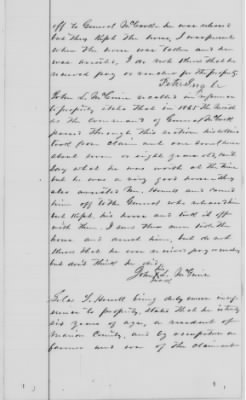 off to General McCook he was released
but they kept the horse, I was present
when the horse was taken and he
was arrested, I do not think that he
received pay or voucher for the property
John L. McGuire recalled in reference
to property states that in 1865 the
as the command of General McCook
passed through this section his
took from claimant one sorrel horse
about seven or eight years old, cant
say what he was worth at the time
but he was a very good horse they
also arrested Mr. Howell and carried
him off to the General who released him
but kept his horse and took it off
with them, I seen them men take the
horse and arrest him, but do not
think that he ever received pay
but dont think he did
his
John L. McGuire
mark
Silas S. Howell being duly sworn in ref-
erence to property, states that he is sixty
six years of age, a resident of
Marion County, and by occupation a
farmer and son of the claimant